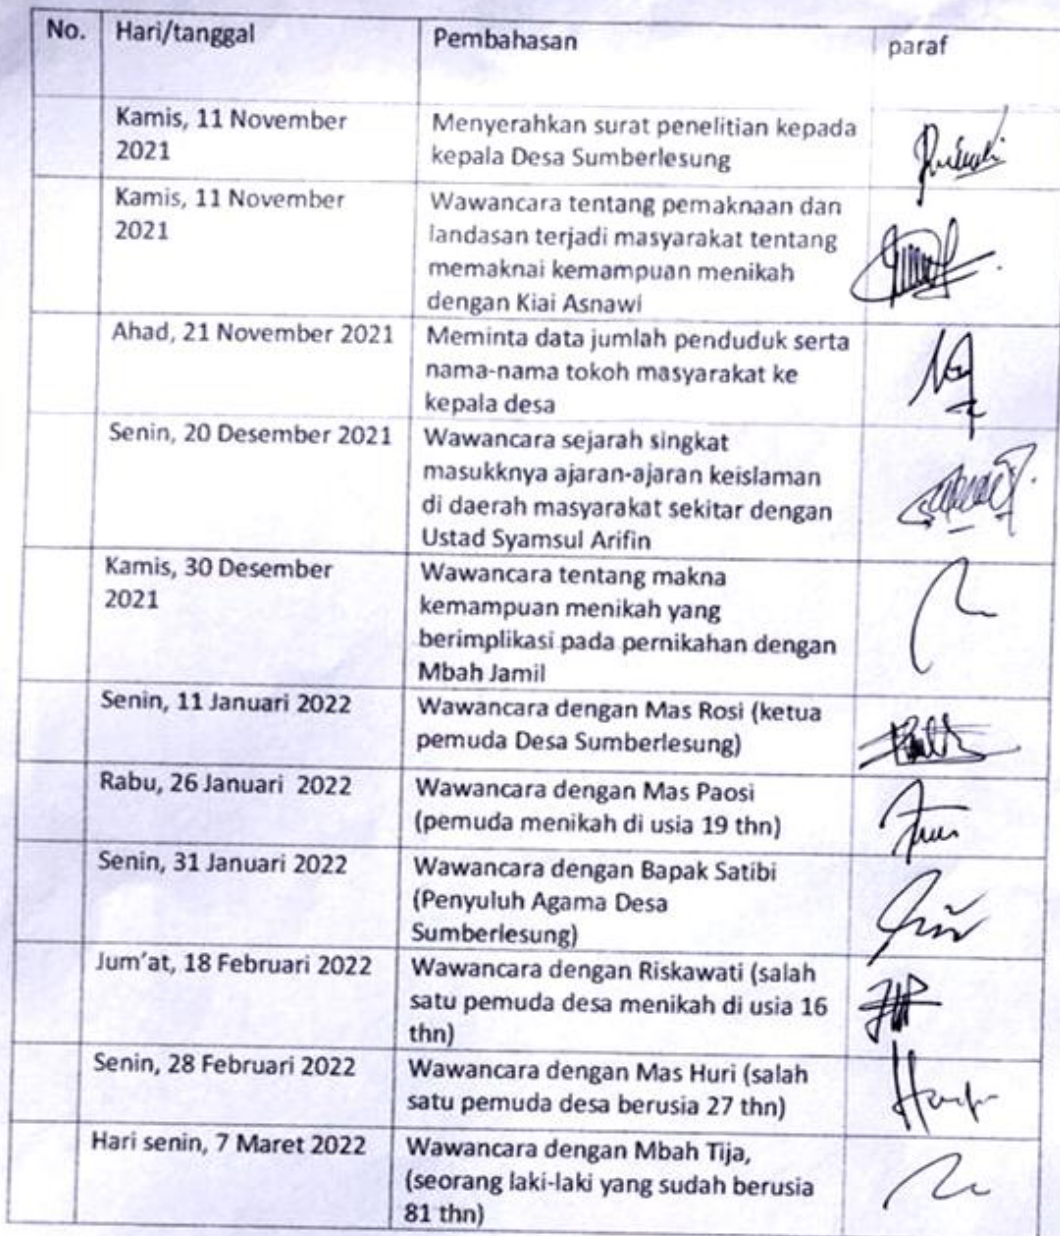 No. Hari/tanggal Pembahasan paraf
Kamis, 11 November
2021
Menyerahkan surat penelitian kepada
kepala Desa Sumberlesung
Kamis, 11 November
2021
Wawancara tentang pemaknaan dan
landasan terjadi masyarakat tentang
memaknai kemampuan menikah
dengan Kiai Asnawi
Ahad, 21 November 2021
Meminta data jumlah penduduk serta
nama-nama tokoh masyarakat ke
kepala desa
Senin, 20 Desember 2021
Wawancara sejarah singkat
masukknya ajaran-ajaran keislaman
di daerah masyarakat sekitar dengan
Ustad Syamsul Arifin
Kamis, 30 Desember
2021
Wawancara tentang makna
kemampuan menikah yang
berimplikasi pada pernikahan dengan
Mbah Jamil
Senin, 11 Januari 2022
Wawancara dengan Mas Rosi (ketua
pemuda Desa Sumberlesung)
Rabu, 26 Januari 2022
Wawancara dengan Mas Paosi
(pemuda menikah di usia 19 thn)
Senin, 31 Januari 2022
Wawancara dengan Bapak Satibi
(Penyuluh Agama Desa
Sumberlesung)
Jum'at, 18 Februari 2022
Wawancara dengan Riskawati (salah
satu pemuda desa menikah di usia 16
thn)
Senin, 28 Februari 2022
Wawancara dengan Mas Huri (salah
satu pemuda desa berusia 27 thn)
Hari senin, 7 Maret 2022
Wawancara dengan Mbah Tija,
(seorang laki-laki yang sudah berusia
81 thn)